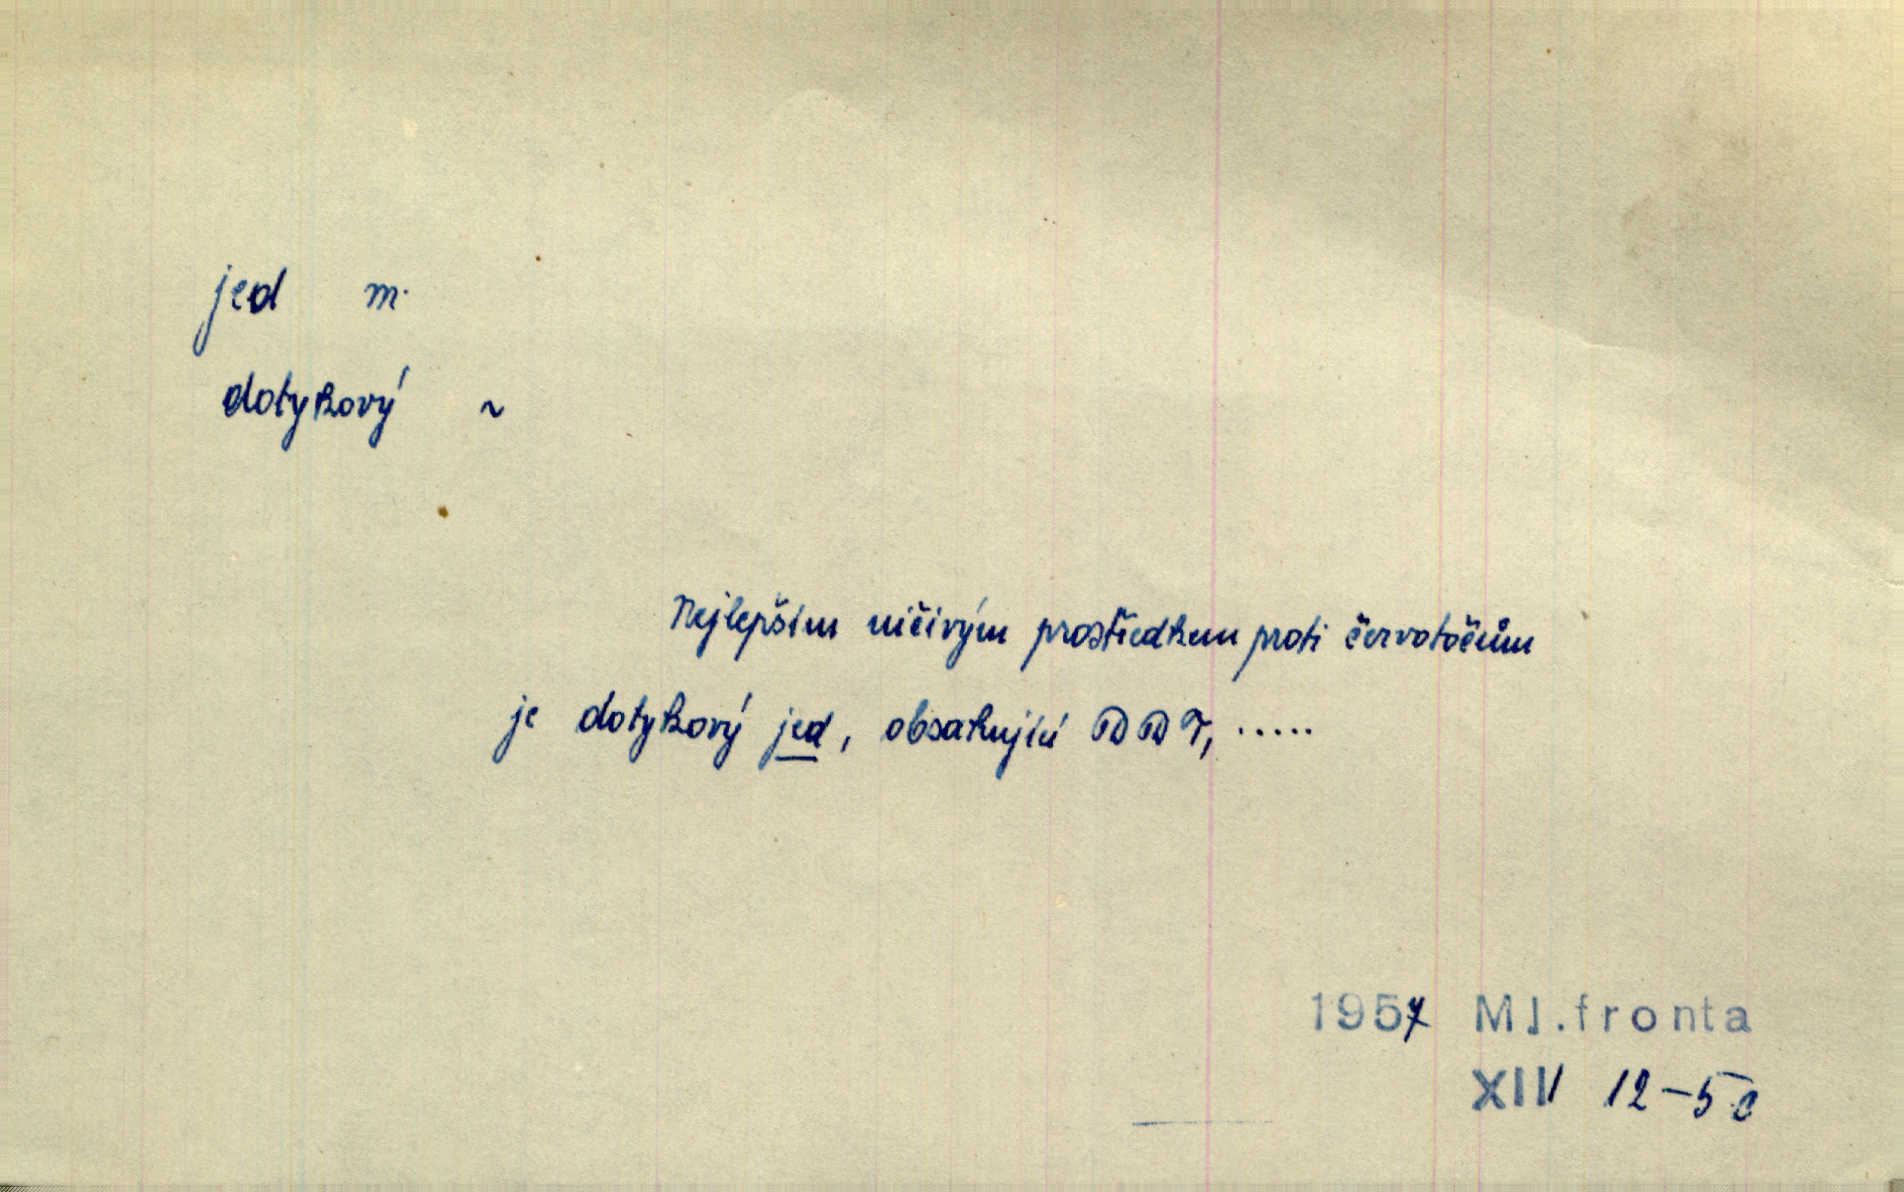 jed m.
dotykový ~
Nejlepším ničivým prostředkem proti červotočům
je dotykový jed, obsahující DDT, .....
1957 Ml.fronta
XIII 12-5c